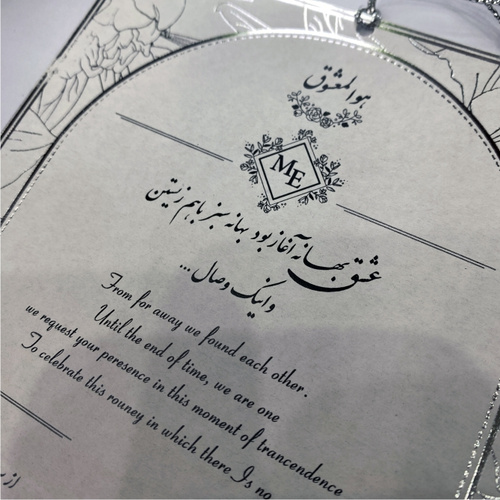 هوالمعشوق
ME
عشق بهانه آغاز بود بهانه سبز باهم زیستن
و اینک وصال ...
From for away we found each other.
Until the end of time, we are one
we request your peresence in this moment of trancendence
To celebrate this rouney in which there Is no
از